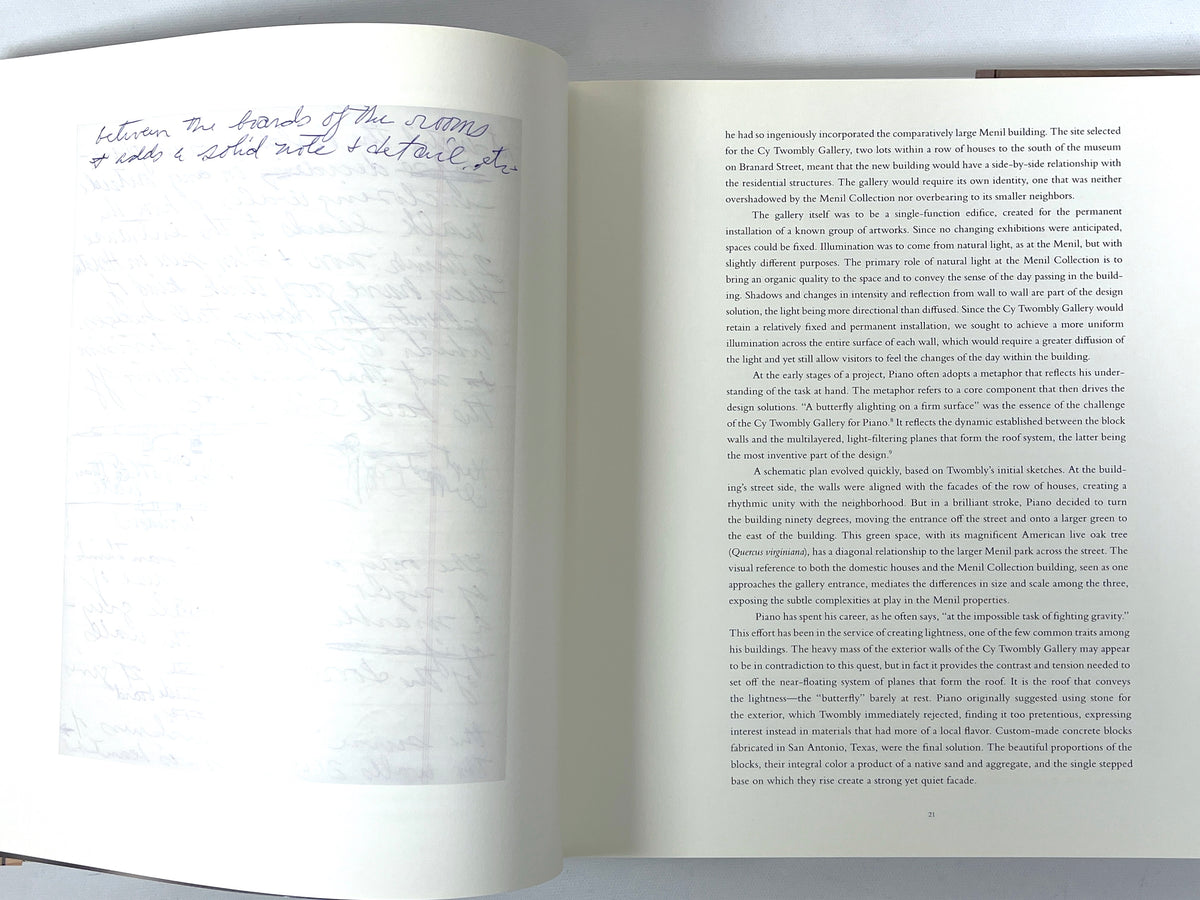 between the boards of the rooms
& adds a solid note & detail. etc
he had so ingeniously incorporated the comparatively large Menil building. The site selected
for the Cy Twombly Gallery, two lots within a row of houses to the south of the museum
on Branard Street, meant that the new building would have a side-by-side relationship with
the residential structures. The gallery would require its own identity, one that was neither
overshadowed by the Menil Collection nor overbearing to its smaller neighbors.
The gallery itself was to be a single-function edifice, created for the permanent
installation of a known group of artworks. Since no changing exhibitions were anticipated,
spaces could be fixed. Illumination was to come from natural light, as at the Menil, but with
slightly different purposes. The primary role of natural light at the Menil Collection is to
bring an organic quality to the space and to convey the sense of the day passing in the build-
ing. Shadows and changes in intensity and reflection from wall to wall are part of the design
solution, the light being more directional than diffused. Since the Cy Twombly Gallery would
retain a relatively fixed and permanent installation, we sought to achieve a more uniform
illumination across the entire surface of each wall, which would require a greater diffusion of
the light and yet still allow visitors to feel the changes of the day within the building.
At the early stages of a project, Piano often adopts a metaphor that reflects his under-
standing of the task at hand. The metaphor refers to a core component that then drives the
design solutions. “A butterfly alighting on a firm surface” was the essence of the challenge
of the Cy Twombly Gallery for Piano.⁸ It reflects the dynamic established between the block
walls and the multilayered, light-filtering planes that form the roof system, the latter being
the most inventive part of the design.⁹
A schematic plan evolved quickly, based on Twombly’s initial sketches. At the build-
ing’s street side, the walls were aligned with the facades of the row of houses, creating a
rhythmic unity with the neighborhood. But in a brilliant stroke, Piano decided to turn
the building ninety degrees, moving the entrance off the street and onto a larger green to
the east of the building. This green space, with its magnificent American live oak tree
(Quercus virginiana), has a diagonal relationship to the larger Menil park across the street. The
visual reference to both the domestic houses and the Menil Collection building, seen as one
approaches the gallery entrance, mediates the differences in size and scale among the three,
exposing the subtle complexities at play in the Menil properties.
Piano has spent his career, as he often says, “at the impossible task of fighting gravity.”
This effort has been in the service of creating lightness, one of the few common traits among
his buildings. The heavy mass of the exterior walls of the Cy Twombly Gallery may appear
to be in contradiction to this quest, but in fact it provides the contrast and tension needed to
set off the near-floating system of planes that form the roof. It is the roof that conveys
the lightness—the “butterfly” barely at rest. Piano originally suggested using stone for
the exterior, which Twombly immediately rejected, finding it too pretentious, expressing
interest instead in materials that had more of a local flavor. Custom-made concrete blocks
fabricated in San Antonio, Texas, were the final solution. The beautiful proportions of the
blocks, their integral color a product of a native sand and aggregate, and the single stepped
base on which they rise create a strong yet quiet facade.
21